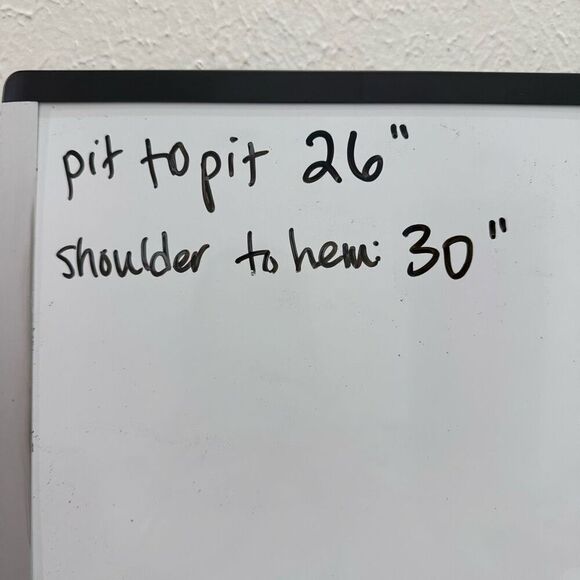 pit to pit 26"
shoulder to hem: 30"